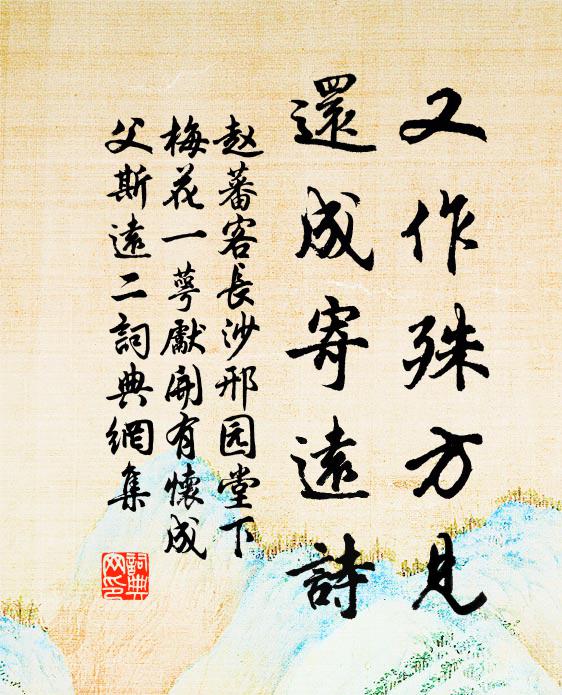 又作殊方見
還成寄遠詩
赵蕃客長沙邢园堂下
梅花一萼獻開有懷成
父斯遠二詞典網集
詞典
网印